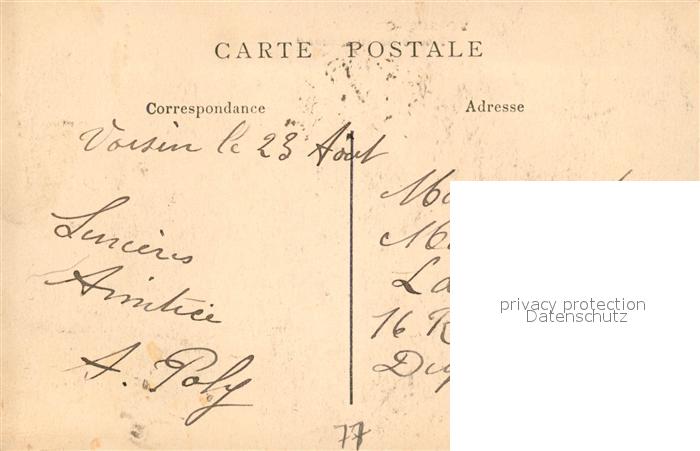 CARTE POSTALE
Correspondance
Adresse
Voisin le 23 Aout
Sincères
Amitiés
A. Poly
16
77
privacy protection
Datenschutz